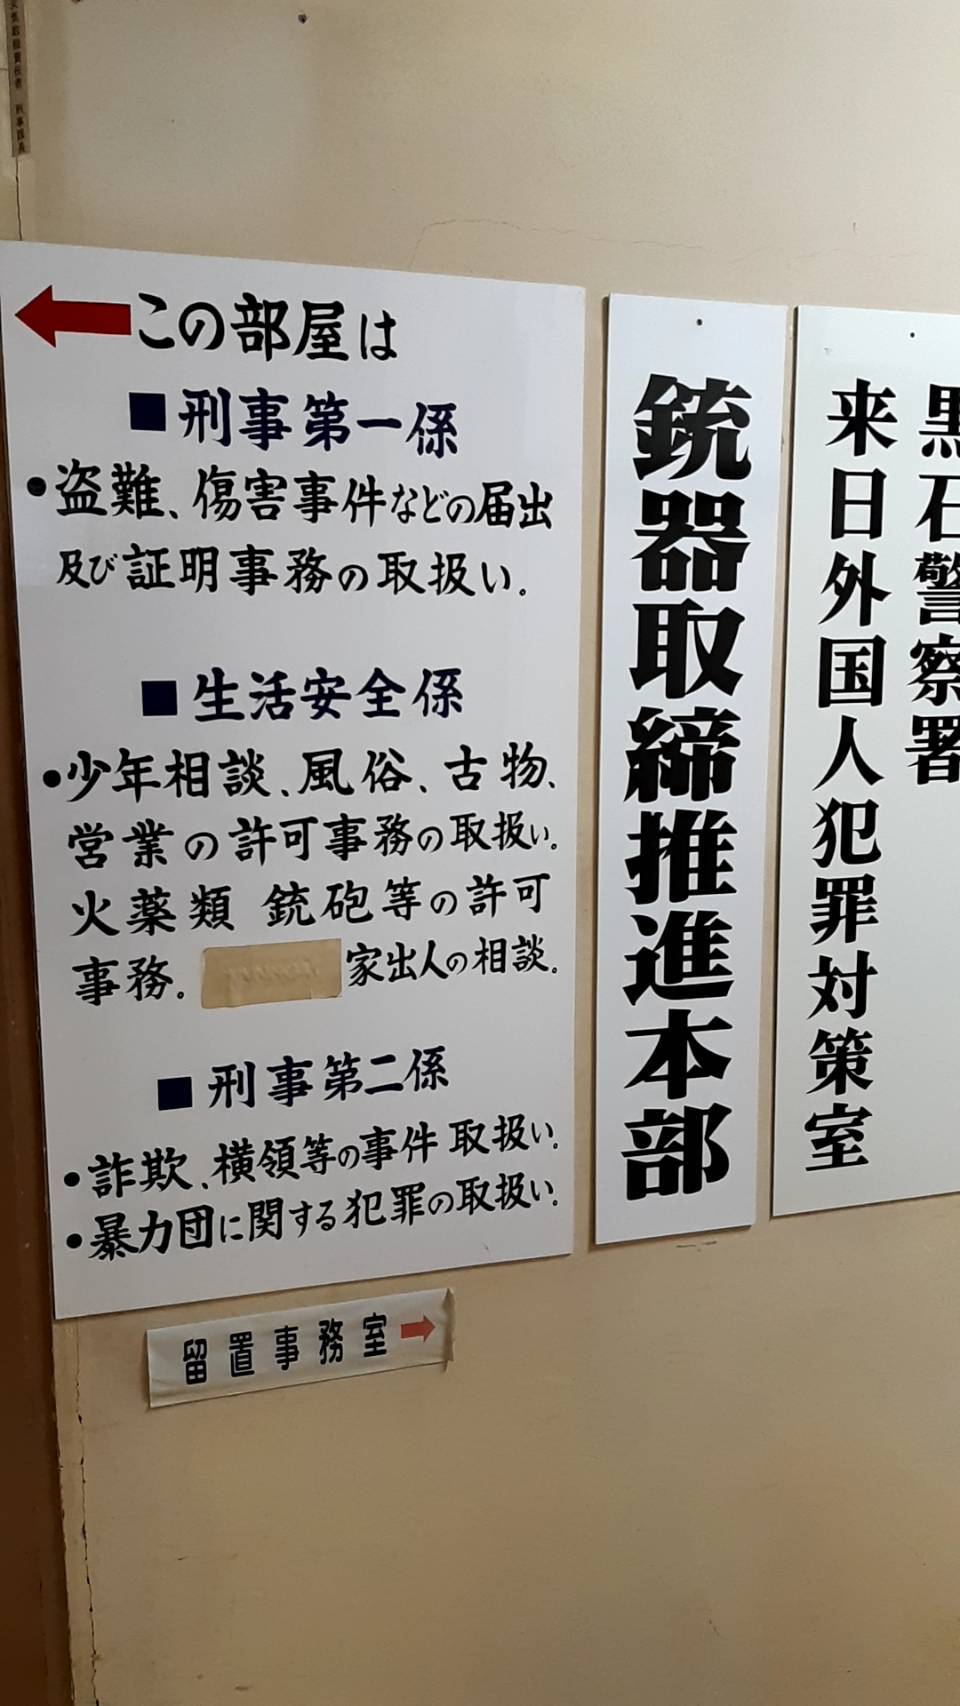 この部屋は
■刑事第一係
•盗難、傷害事件などの届出
及び証明事務の取扱い。
■生活安全係
•少年相談、風俗、古物、
営業の許可事務の取扱い。
火薬類 銃砲等の許可
事務。 家出人の相談。
■刑事第二係
•詐欺、横領等の事件取扱い。
•暴力団に関する犯罪の取扱い。
留置事務室
銃器取締推進本部
黒石警察署
来日外国人犯罪対策室